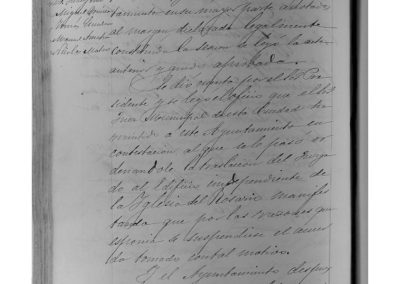 Miguel
tamiento en su mayor parte, anotados
al margen declarada legalmente
constituida la sesion se leyó la acta
anterior y quedó aprobada.
Se dió cuenta por el Sr. Pre
sidente y se leyó el oficio que el Sr.
Juez Municipal de esta Ciudad ha
remitido a este Ayuntamiento en
contestacion al que se le pasó or
denandole la traslacion del Juzga
do al Edificio independiente de
la Iglesia del Rosario manifes
tando que por las razones que
esponia se suspendiese el acuer
do tomado con tal motivo.
Y el Ayuntamiento despues